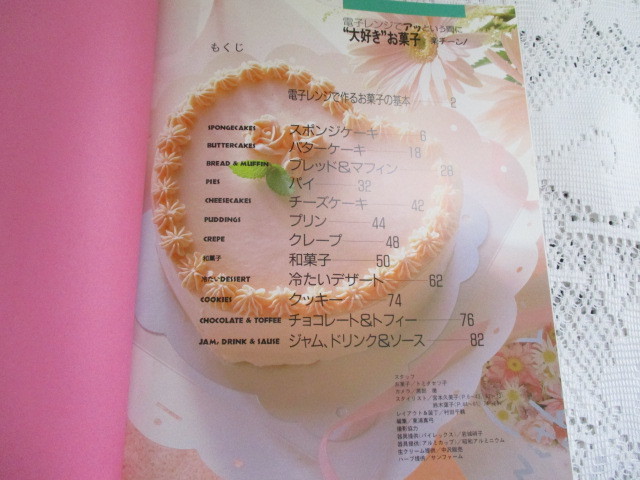 電子レンジでアッという間に
"大好き"お菓子
もくじ
電子レンジで作るお菓子の基本 2
SPONGECAKES スポンジケーキ 6
BUTTERCAKES バターケーキ 18
BREAD & MUFFIN ブレッド&マフィン 28
PIES パイ 32
CHEESECAKES チーズケーキ 42
PUDDINGS プリン 44
CREPE クレープ 48
和菓子 和菓子 50
冷たいDESSERT 冷たいデザート 62
COOKIES クッキー 74
CHOCOLATE & TOFFEE チョコレート&トフィー 76
JAM, DRINK & SAUSE ジャム、ドリンク&ソース 82
スタッフ
レイアウト&装丁/村田千鶴
撮影協力